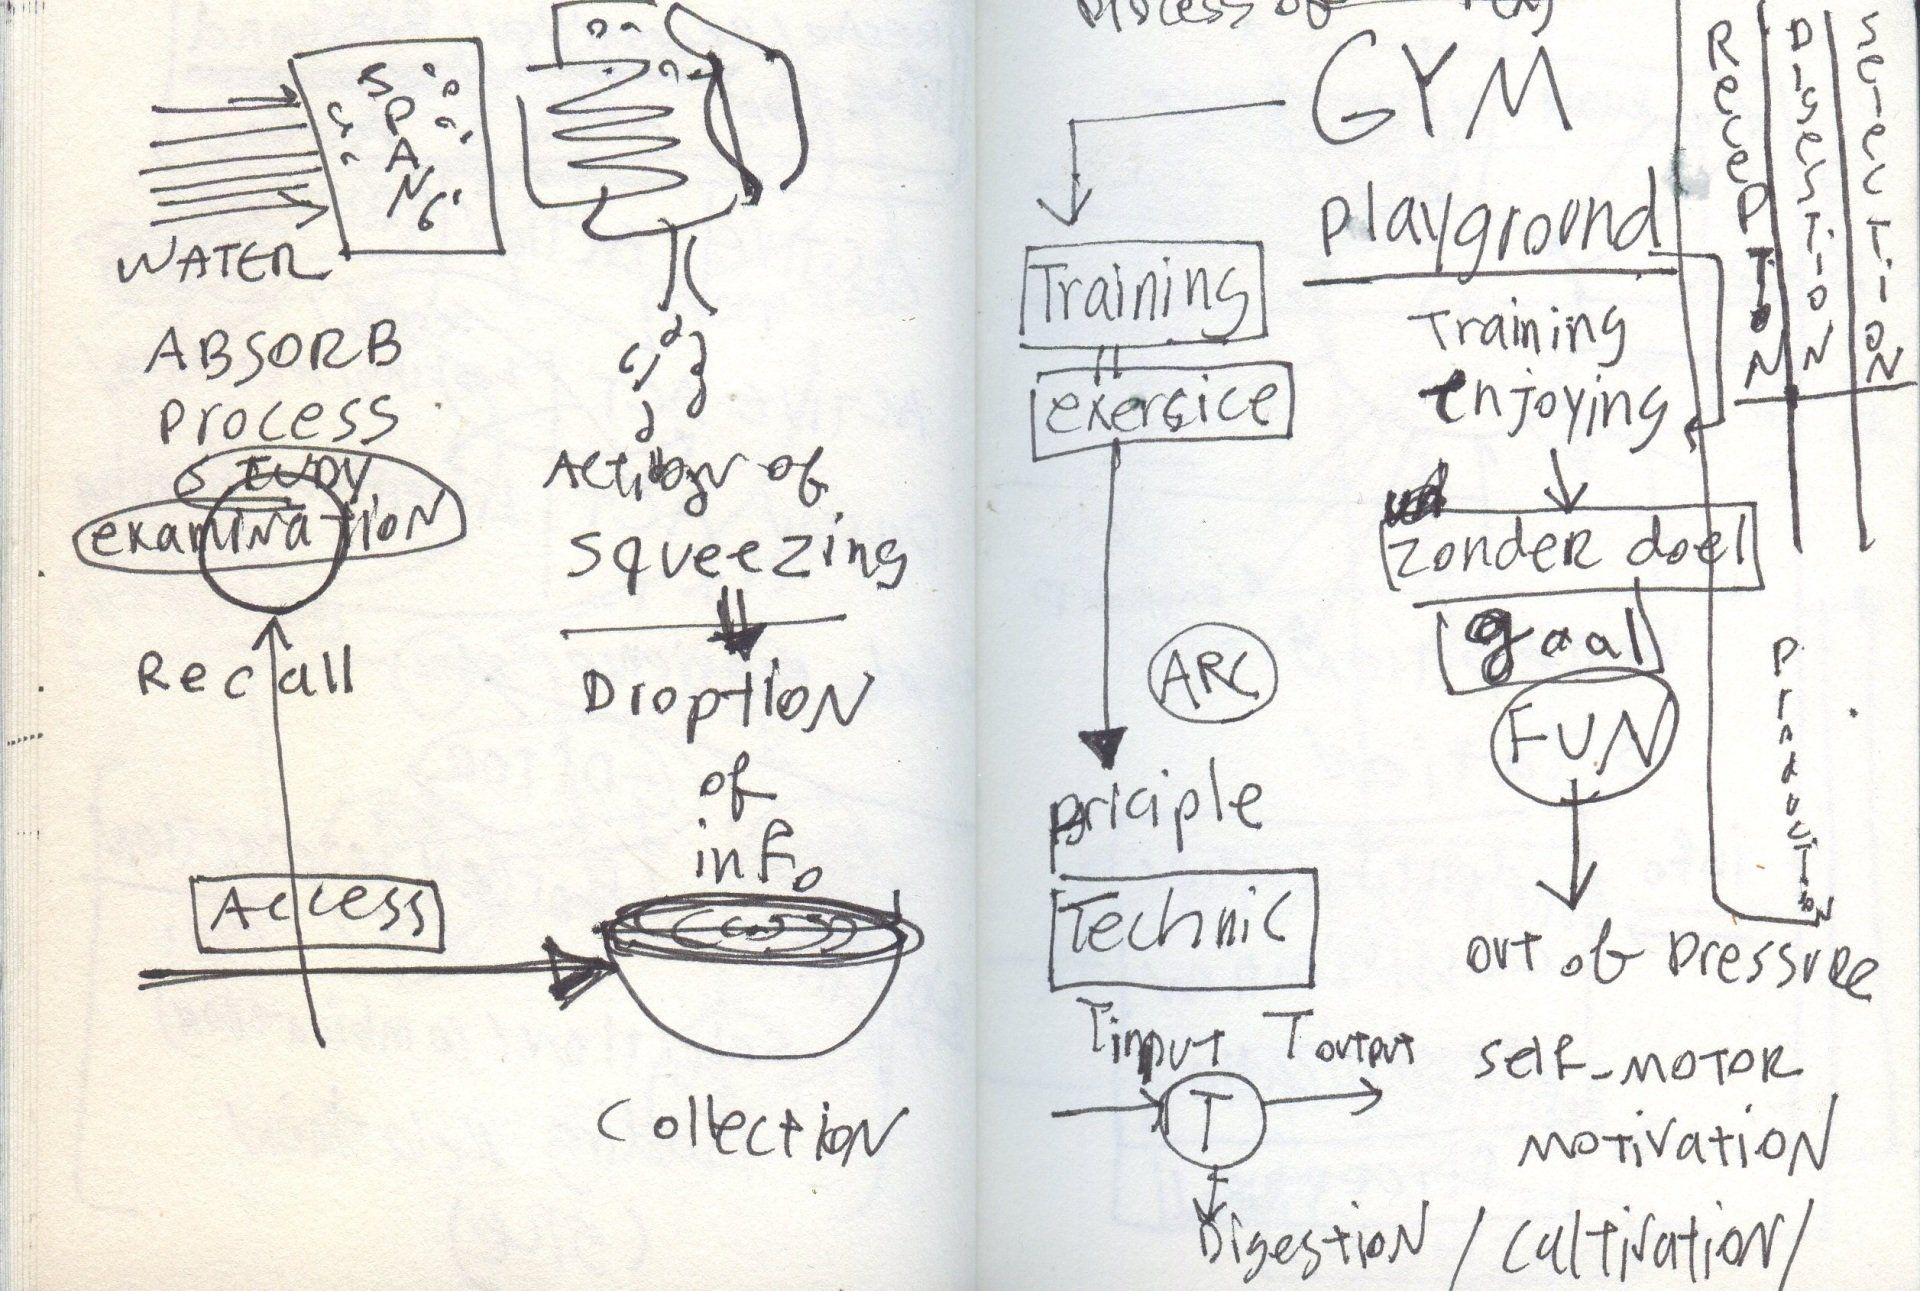 SPANG
WATER
ABSORB
Process
STUDY
examination
Recall
Access
Action of
squeezing
Droption
of
info
Collection
process of
GYM
playground
Training
exersice
Training
enjoying
zonder doel
goal
FUN
ARC
priciple
Technic
out of pressure
Tinput Toutput
T
self-MOTOR
MOTIVATION
Digestion / Cultivation /
RecepTION
Digestion
Production